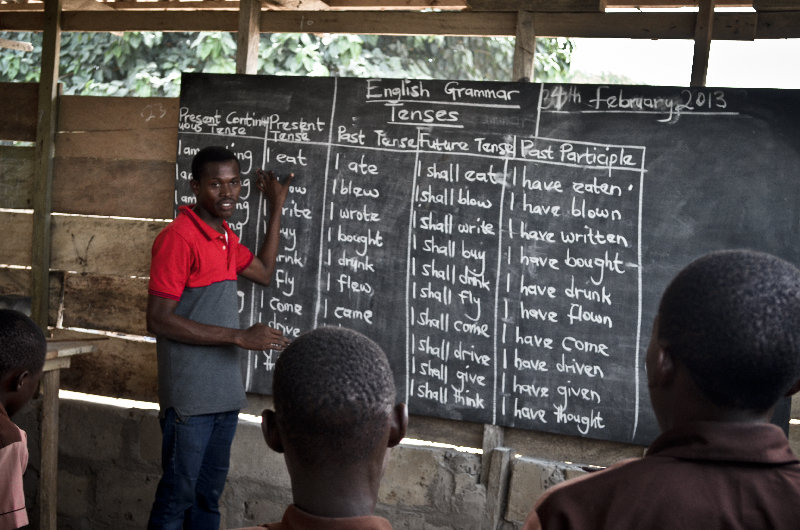 English Grammar
Tenses
4th February, 2013
Present Contin
uous Tense
Present
Tense
Past Tense
Future Tense
Past Participle
I eat
I ate
I shall eat
I have eaten
I blew
I shall blow
I have blown
I wrote
I shall write
I have written
I bought
I shall buy
I have bought
I drunk
I shall drink
I have drunk
fly
I flew
I shall fly
I have flown
come
I came
I shall come
I have come
drive
I shall drive
I have driven
I shall give
I have given
I shall think
I have thought